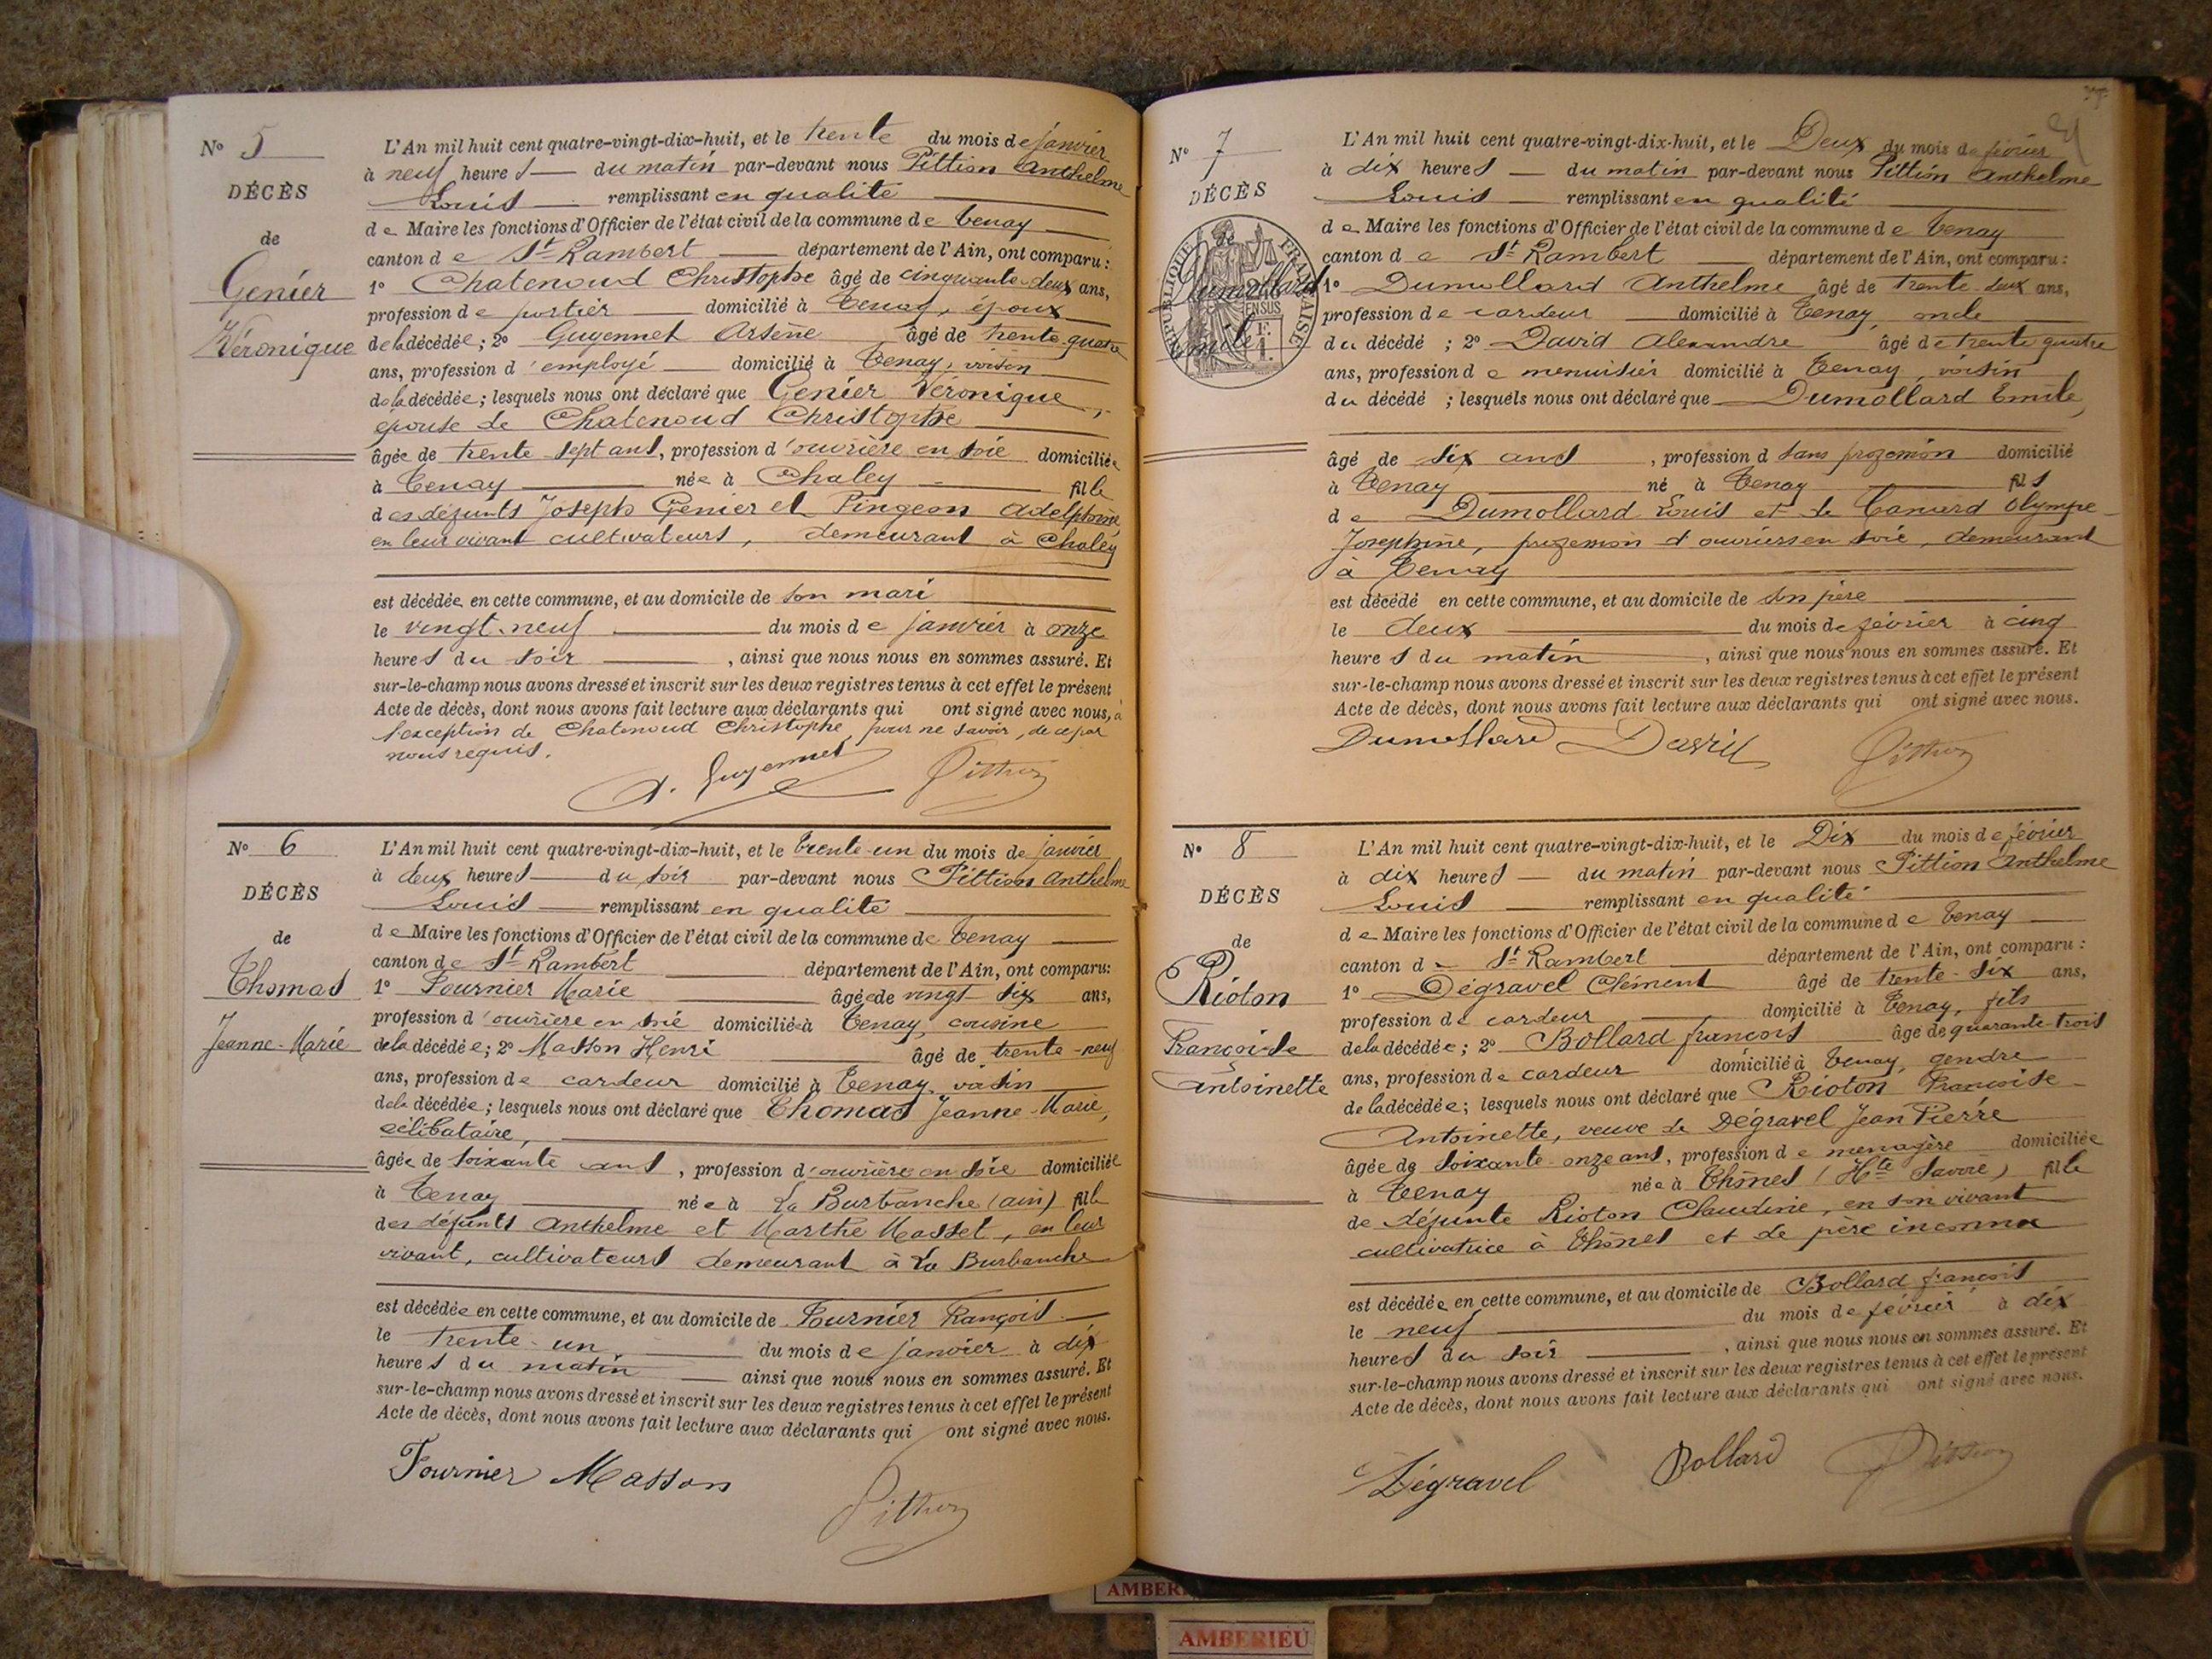 N° 5
DÉCÈS
de
Genier
Véronique
L'An mil huit cent quatre-vingt-dix-huit, et le trente du mois de janvier
à neuf heures du matin par-devant nous Pittion Anthelme
Louis remplissant en qualité
de Maire les fonctions d'Officier de l'état civil de la commune de Tenay
canton de St Rambert département de l'Ain, ont comparu:
1° Chatenoud Christophe âgé de cinquante-deux ans,
profession de portier domicilié à Tenay, époux
de la décédée; 2° Guyennet Arsène âgé de trente quatre
ans, profession d'employé domicilié à Tenay, voisin
de la décédée; lesquels nous ont déclaré que Genier Véronique,
épouse de Chatenoud Christophe
âgée de trente sept ans, profession d'ouvrière en soie domiciliée
à Tenay née à Chaley fille
des défunts Joseph Genier et Pingeon Adelphine
en leur vivant cultivateurs, demeurant à Chaley
est décédée en cette commune, et au domicile de son mari
le vingt-neuf du mois de janvier à onze
heures du soir, ainsi que nous nous en sommes assuré. Et
sur-le-champ nous avons dressé et inscrit sur les deux registres tenus à cet effet le présent
Acte de décès, dont nous avons fait lecture aux déclarants qui ont signé avec nous, à
l'exception de Chatenoud Christophe, pour ne savoir, de ce par
nous requis.
A. Guyennet Pittion
N° 6
DÉCÈS
de
Thomas
Jeanne-Marie
L'An mil huit cent quatre-vingt-dix-huit, et le trente-un du mois de janvier
à deux heures du soir par-devant nous Pittion Anthelme
Louis remplissant en qualité
de Maire les fonctions d'Officier de l'état civil de la commune de Tenay
canton de St Rambert département de l'Ain, ont comparu:
1° Fournier Marie âgée de vingt-six ans,
profession d'ouvrière en soie domiciliée à Tenay, cousine
de la décédée; 2° Masson Henri âgé de trente-neuf
ans, profession de cardeur domicilié à Tenay, voisin
de la décédée; lesquels nous ont déclaré que Thomas Jeanne-Marie,
célibataire,
âgée de soixante ans, profession d'ouvrière en soie domiciliée
à Tenay née à La Burbanche (ain) fille
des défunts Anthelme et Marthe Masset, en leur
vivant, cultivateurs demeurant à La Burbanche
est décédée en cette commune, et au domicile de Fournier François
le trente-un du mois de janvier à dix
heures du matin ainsi que nous nous en sommes assuré. Et
sur-le-champ nous avons dressé et inscrit sur les deux registres tenus à cet effet le présent
Acte de décès, dont nous avons fait lecture aux déclarants qui ont signé avec nous.
Fournier Masson
Pittion
N° 7
DÉCÈS
RÉPUBLIQUE FRANÇAISE
Dumollard
Emile
L'An mil huit cent quatre-vingt-dix-huit, et le Deux du mois de février
à dix heures du matin par-devant nous Pittion Anthelme
Louis remplissant en qualité
de Maire les fonctions d'Officier de l'état civil de la commune de Tenay
canton de St Rambert département de l'Ain, ont comparu:
1° Dumollard Anthelme âgé de trente-deux ans,
profession de cardeur domicilié à Tenay, oncle
du décédé; 2° David Alexandre âgé de trente quatre
ans, profession de menuisier domicilié à Tenay, voisin
du décédé; lesquels nous ont déclaré que Dumollard Emile,
âgé de six ans, profession d sans profession domicilié
à Tenay né à Tenay fils
de Dumollard Louis et de Canard Olympe
Josephine, profession d'ouvriers en soie, demeurant
à Tenay
est décédé en cette commune, et au domicile de son père
le deux du mois de février à cinq
heures du matin, ainsi que nous nous en sommes assuré. Et
sur-le-champ nous avons dressé et inscrit sur les deux registres tenus à cet effet le présent
Acte de décès, dont nous avons fait lecture aux déclarants qui ont signé avec nous.
Dumollard David Pittion
N° 8
DÉCÈS
de
Rioton
Françoise
Antoinette
L'An mil huit cent quatre-vingt-dix-huit, et le Dix du mois de février
à dix heures du matin par-devant nous Pittion Anthelme
Louis remplissant en qualité
de Maire les fonctions d'Officier de l'état civil de la commune de Tenay
canton de St Rambert département de l'Ain, ont comparu:
1° Dégravel Clément âgé de trente-six ans,
profession de cardeur domicilié à Tenay, fils
de la décédée; 2° Bollard françois âgé de quarante-trois
ans, profession de cardeur domicilié à Tenay, gendre
de la décédée; lesquels nous ont déclaré que Rioton Françoise
Antoinette, veuve de Dégravel Jean Pierre
âgée de soixante-onze ans, profession de menagère domiciliée
à Tenay née à Thônes (Hte Savoie) fille
de défunte Rioton Claudine, en son vivant
cultivatrice à Thônes et de père inconnu
est décédée en cette commune, et au domicile de Bollard françois
le neuf du mois de février à dix
heures du soir, ainsi que nous nous en sommes assuré. Et
sur-le-champ nous avons dressé et inscrit sur les deux registres tenus à cet effet le présent
Acte de décès, dont nous avons fait lecture aux déclarants qui ont signé avec nous.
Dégravel Bollard Pittion
AMBERIEU